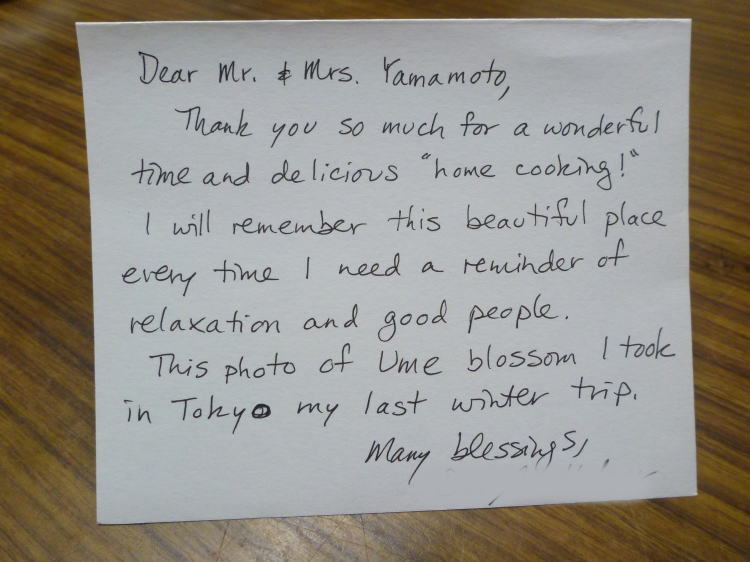 Dear Mr. & Mrs. Yamamoto,
Thank you so much for a wonderful
time and delicious "home cooking!"
I will remember this beautiful place
every time I need a reminder of
relaxation and good people.
This photo of Ume blossom I took
in Tokyo my last winter trip.
Many blessings,